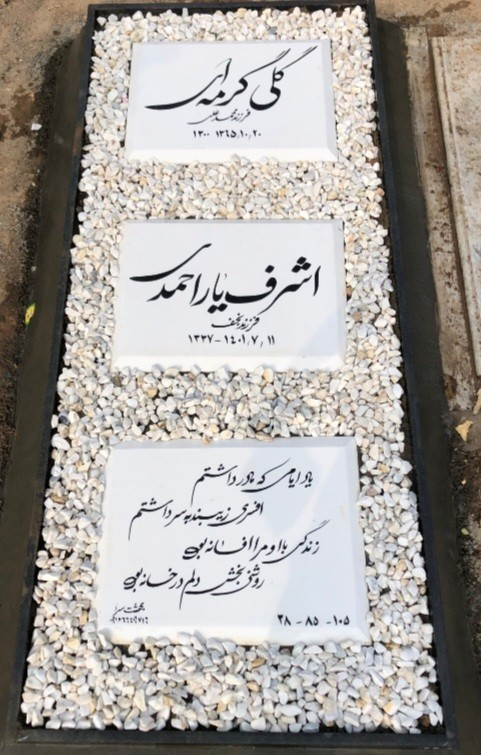 گلی گرمه ای
فرزند محمدعلی
۱۳۰۰ ۱۳۶۵/۱۰/۲۰
اشرف یاراحمدی
فرزند نجف
۱۳۳۷-۱۴۰۱/۷/۱۱
یاد ایامی که مادر داشتم
افسری زیبنده سر داشتم
زندگی با او مرا افسانه بود
روشنی بخش دلم در خانه بود
۳۸ - ۸۵ - ۱۰۵